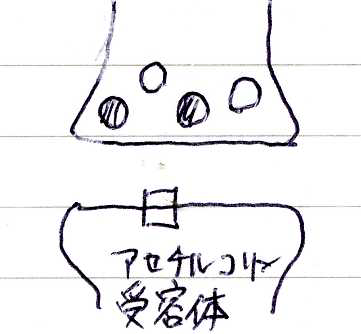 アセチルコリン
受容体